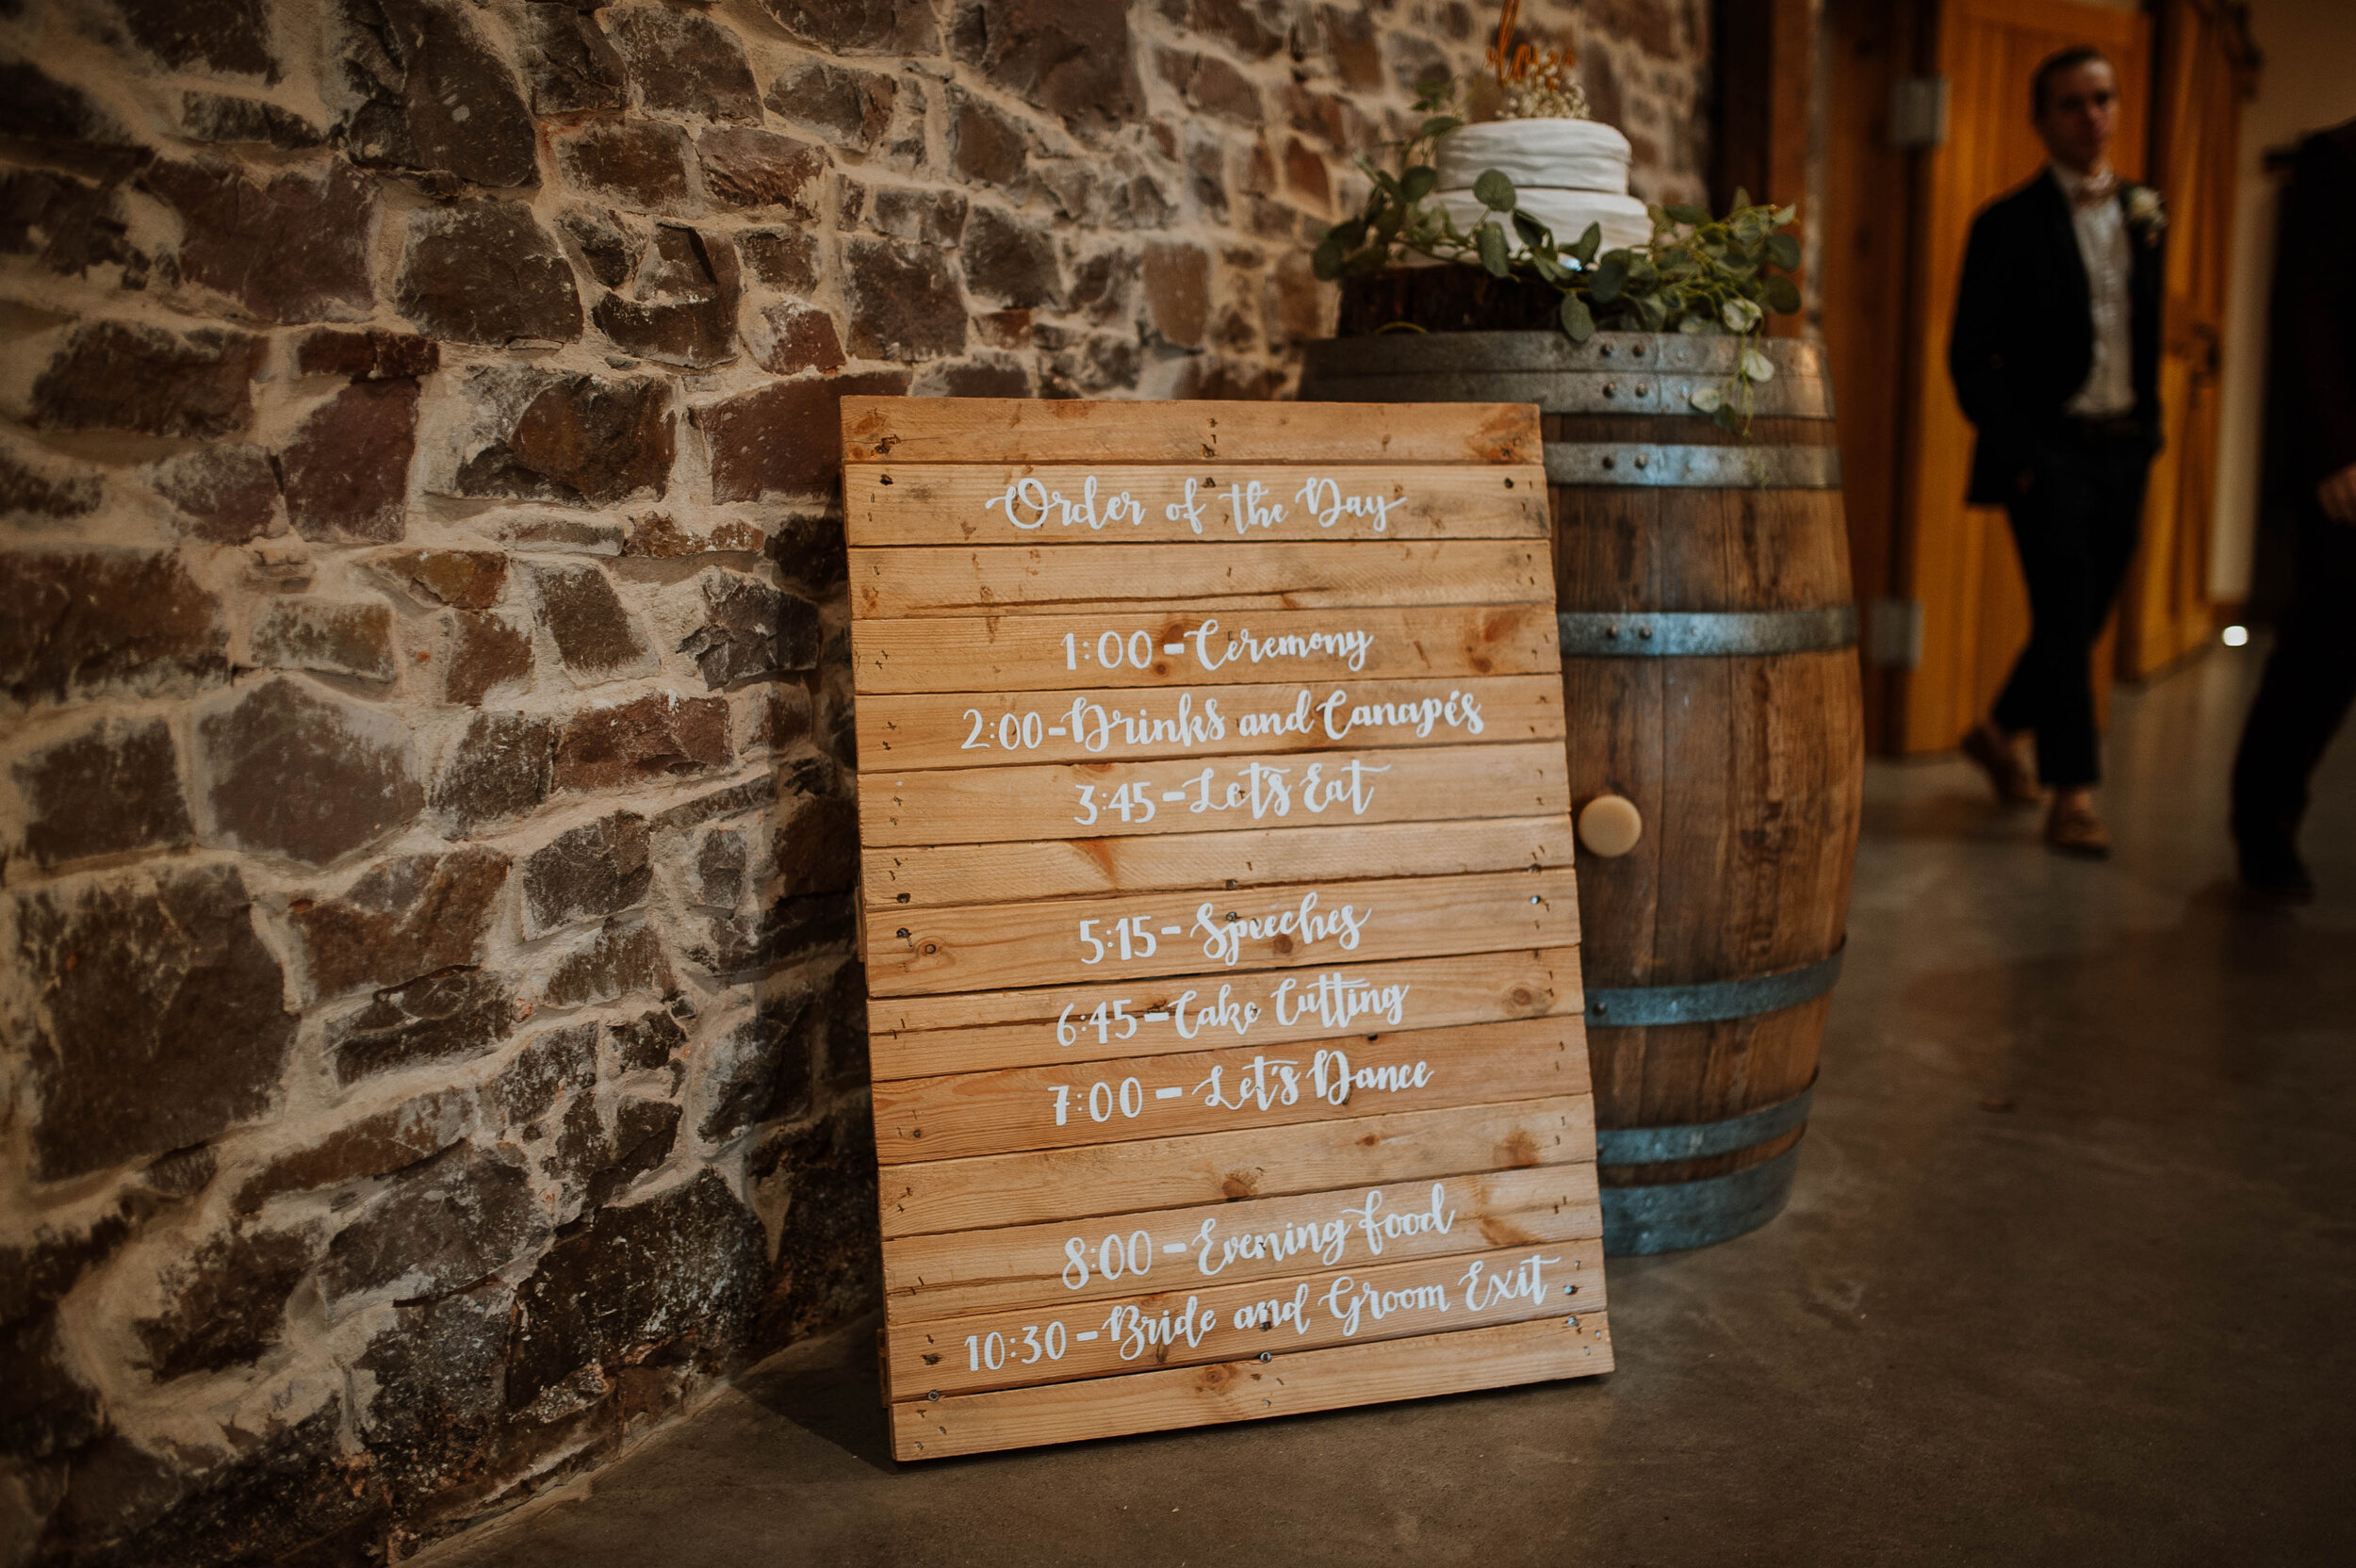 love
Order of the Day
1:00 - Ceremony
2:00 - Drinks and Canapés
3:45 - Let's Eat
5:15 - Speeches
6:45 - Cake Cutting
7:00 - Let's Dance
8:00 - Evening food
10:30 - Bride and Groom Exit